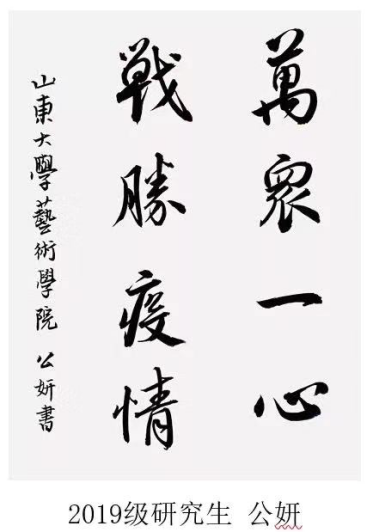 萬眾一心
戰勝疫情
山東大學藝術學院 公妍書
2019级研究生 公妍